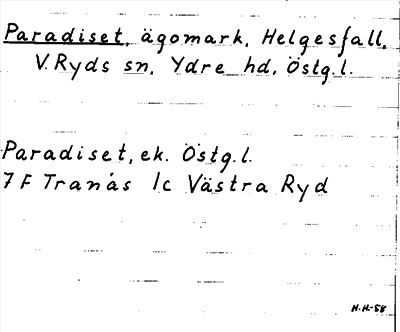 Paradiset, ägomark, Helgesfall,
V. Ryds sn, Ydre hd, Östg.l.
Paradiset, ek. Östg.l.
7 F Tranås 1c Västra Ryd
H.H.-58